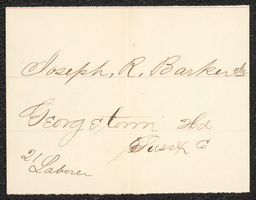 Joseph, R, Barker
Georgetown Hd
Sussx C
21
Laborer